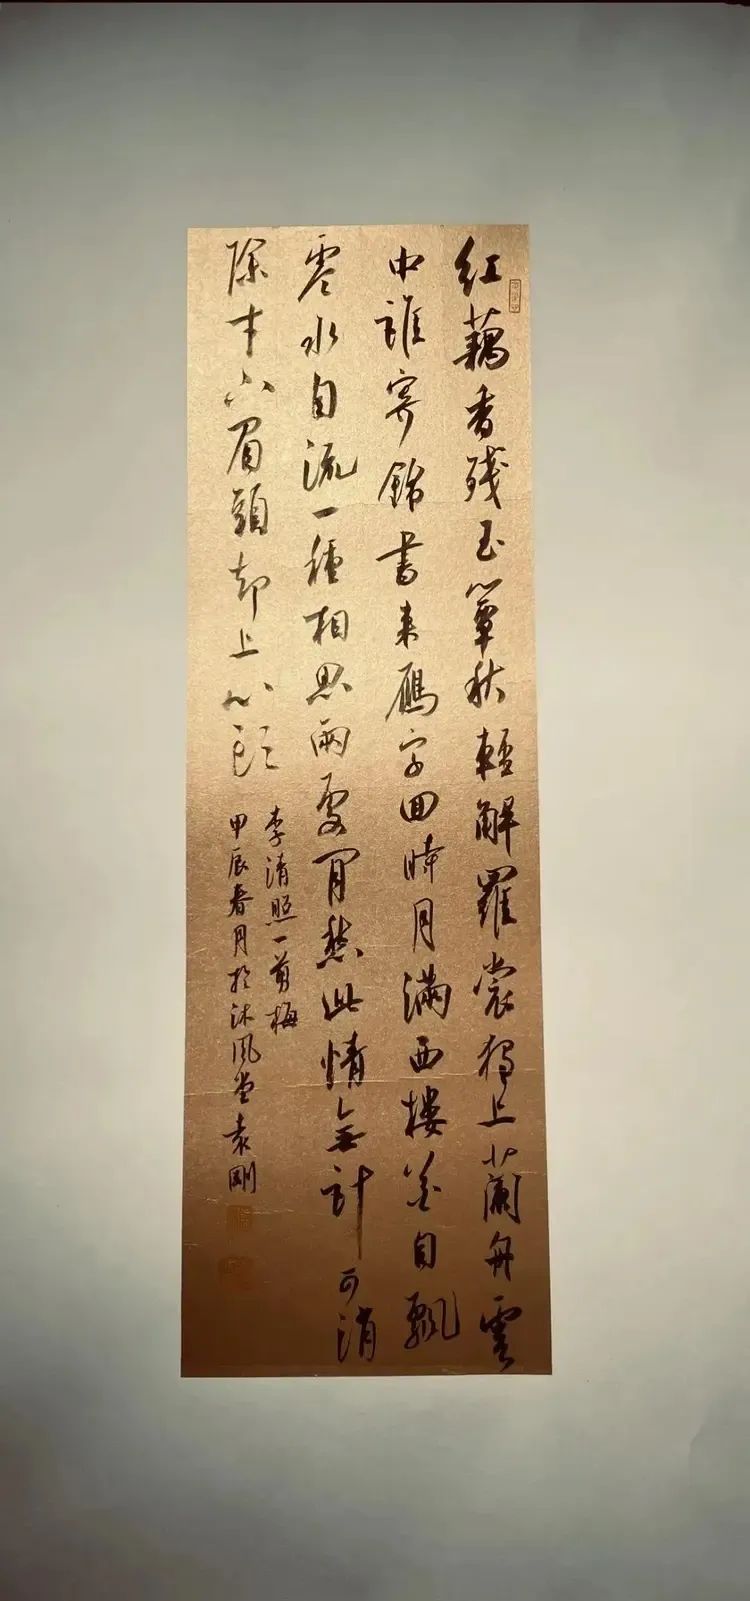 紅藕香殘玉簟秋輕解羅裳獨上蘭舟雲
中誰寄錦書來鴈字回時月滿西樓花自飄
零水自流一種相思兩處閒愁此情無計可消
除才下眉頭却上心頭
李清照一剪梅
甲辰春月於沐風堂袁剛